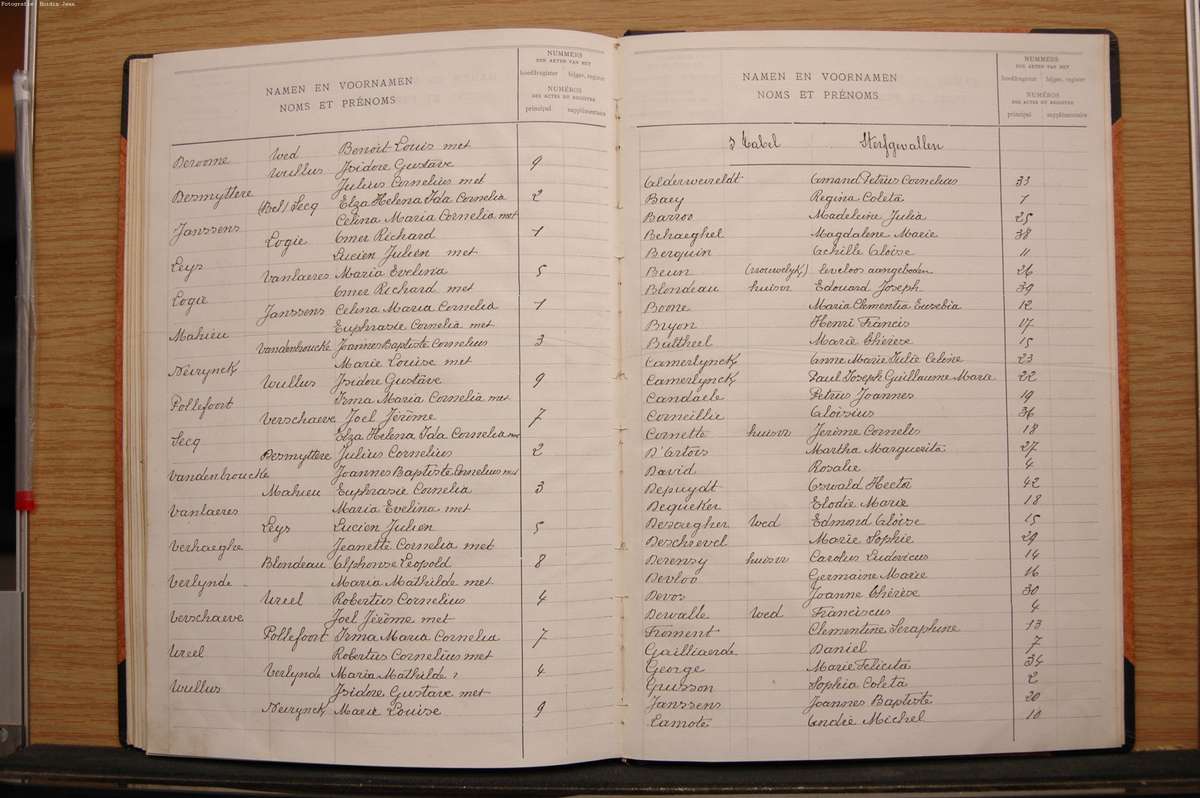 Fotografie: Houdix Jean
NAMEN EN VOORNAMEN
NOMS ET PRÉNOMS
NUMMERS
DER AKTEN VAN HET
hoofdregister bijgev. register
NUMÉROS
DES ACTES DU REGISTRE
principal supplémentaire
Deroome Wed Benoit Louis met
Wullus Isidore Gustave 9
Desmyttere Julius Cornelius met
(Bel) Secq Elza Helena Ida Cornelia 2
Janssens Celina Maria Cornelia met
Logie Omer Richard 1
Leys Lucien Julien met
Vanlaeres Maria Evelina 5
Logie Omer Richard met
Janssens Celina Maria Cornelia 1
Mahieu Euphrasie Cornelia met
Vandenbouckè Joannes Baptiste Cornelius 3
Neirynck Marie Louise met
Wullus Isidore Gustave 9
Pollefoort Irma Maria Cornelia met
Verschaeve Joel Jérôme 7
Secq Elza Helena Ida Cornelia met
Desmyttere Julius Cornelius 2
Vandenbouckè Joannes Baptiste Cornelius met
Mahieu Euphrasie Cornelia 3
Vanlaeres Maria Evelina met
Leys Lucien Julien 5
Verhaeghe Jeanette Cornelia met
Blondeau Alphonse Leopold 8
Verlynde Maria Mathilde met
Ureel Robertus Cornelius 4
Verschaeve Joel Jérôme met
Pollefoort Irma Maria Cornelia 7
Ureel Robertus Cornelius met
Verlynde Maria Mathilde 4
Wullus Isidore Gustave met
Neirynck Marie Louise 9
NAMEN EN VOORNAMEN
NOMS ET PRÉNOMS
NUMMERS
DER AKTEN VAN HET
hoofdregister bijgev. register
NUMÉROS
DES ACTES DU REGISTRE
principal supplémentaire
3 Tabel Sterfgevallen
Alderweireldt Amand Petrus Cornelius 33
Baey Regina Coleta 1
Barroo Madeleine Julia 25
Behaeghel Magdalene Marie 38
Berquin Achille Aloïse 11
Beun (vrouwelyk) leveloos aangeboden 26
Blondeau huisvr Edouard Joseph 39
Boone Maria Clementia Eusebia 12
Bryon Henri Francis 17
Bultheel Marie Thérèse 15
Camerlynck Anne Marie Julie Celine 23
Camerlynck Paul Joseph Guillaume Marie 22
Candaele Petrus Joannes 19
Corneillie Aloïsius 36
Cornette huisvr Jerôme Cornelis 18
D'Artois Martha Marguerita 27
David Rosalie 4
Depuydt Oswald Hector 42
Dequeker Elodie Marie 18
Deraegher Wed Edmond Aloïse 15
Deschrevel Marie Sophie 29
Derensy huisvr Carolus Ludovicus 14
Devloo Germaine Marie 16
Devos Joanne Thérèse 30
Dewalle Wed Franciscus 4
Froment Clementine Seraphine 13
Gailliaerde Daniel 7
George Marie Felicita 34
Guisson Sophia Coleta 2
Janssens Joannes Baptiste 20
Lamote André Michel 10